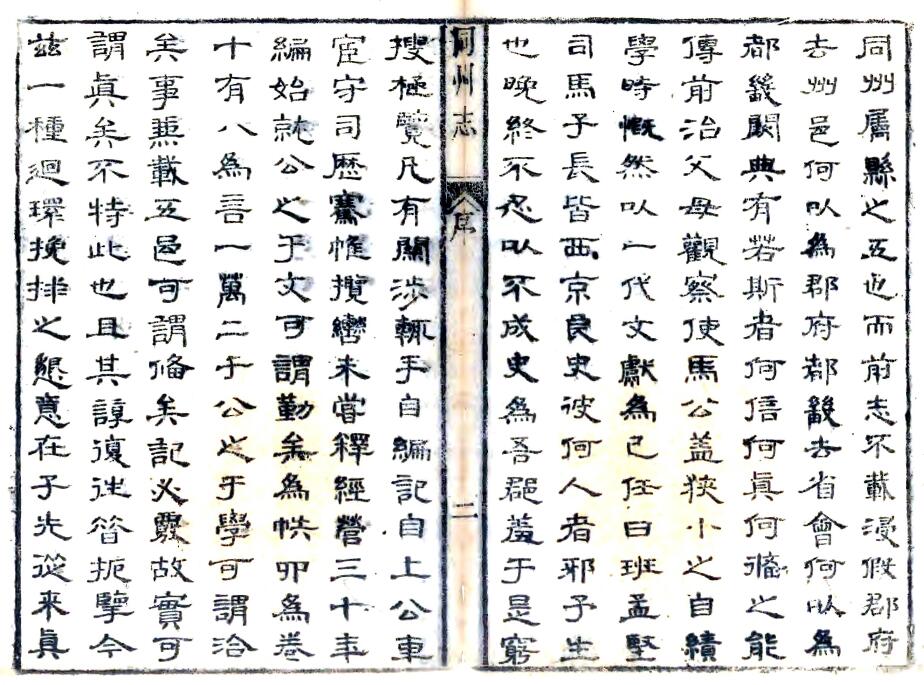 同州屬縣之五也而前志不載浸假郡府
去州邑何以為郡府都畿去省會何以為
都畿闕典有若斯者何信何真何備之能
傳前治父母觀察使馬公蓋狹小之自績
學時慨然以一代文獻為己任曰班孟堅
司馬子長皆西京良史彼何人者邪予生
也晚終不忍以不成史為吾郡羞于是窮
同州志
序
二
搜極覽凡有關涉輒手自編記自上公車
宦守司歷騫帷攬轡未嘗釋經營三十年
編始就公之于文可謂勤矣為帙卯為卷
十有八為言一萬二千公之于學可謂洽
矣事兼載五邑可謂備矣記必覈故實可
謂真矣不特此也且其諄復往昝扼擥今
茲一種迴環挽排之懇意在予先從來真